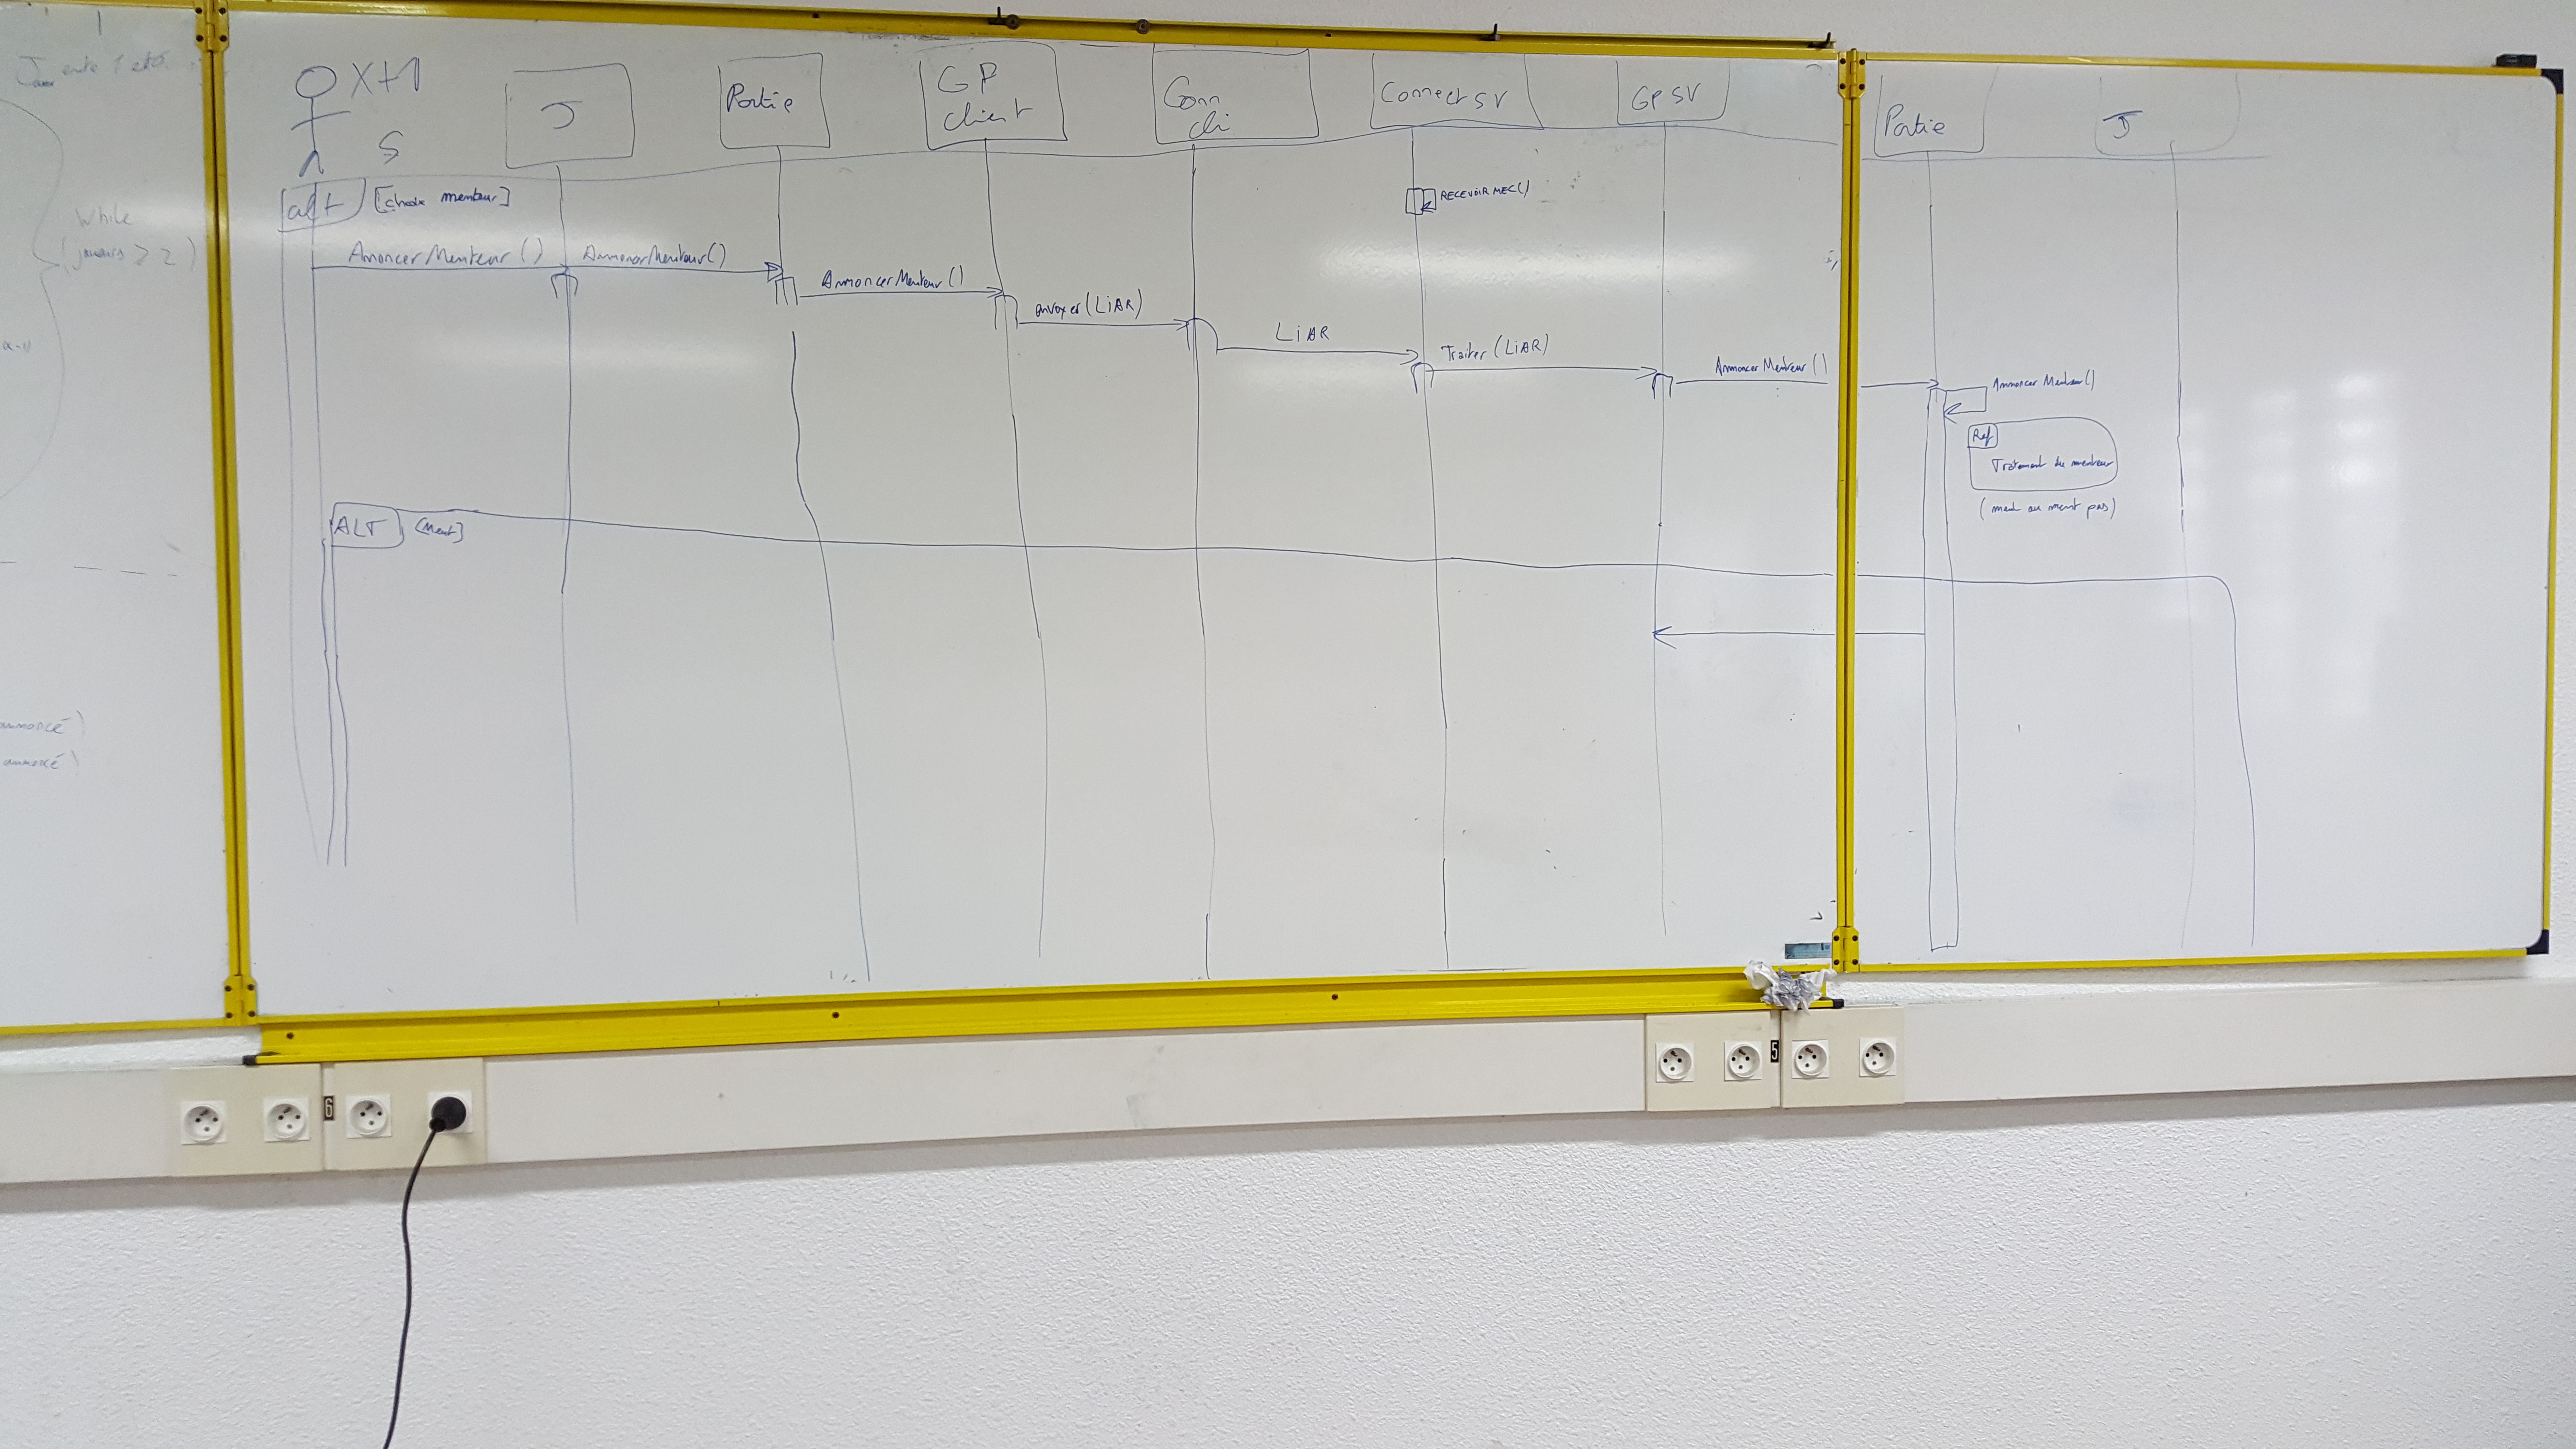 entre 1 et 6
While
(joueurs > 2)
annoncé)
annoncé)
X+1
S
J
Partie
GP
client
Conn
cli
Connect SV
GP SV
Partie
J
alt
[choix menteur]
RECEVOIR MEC()
AnnoncerMenteur()
AnnoncerMenteur()
AnnoncerMenteur()
envoyer(LIAR)
LIAR
Traiter(LIAR)
AnnoncerMenteur()
AnnoncerMenteur()
Ref
Traitement du menteur
(ment ou ment pas)
ALT
[Ment]
6
5